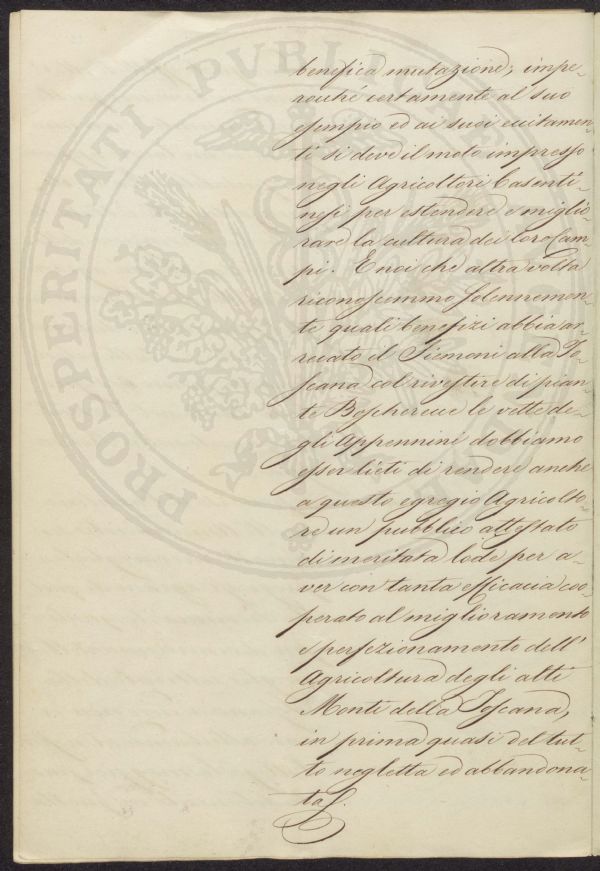 PROSPERITATI PVBLI
benefica mutazione; impe-
rocché certamente al suo
esempio ed ai suoi eccitamen-
ti si deve il moto impresso
negli Agricoltori Casenti-
nesi per estendere e miglio-
rare la cultura dei loro Cam-
pi. E noi che altra volta
riconoscemmo solennemen-
te quali benefizi abbia ar-
recato il Siemoni alla To-
scana col rivestire di pian-
te Boscherecce le vette de-
gli Appennini dobbiamo
esser lieti di rendere anche
a questo egregio Agricolto-
re un pubblico attestato
di meritata lode per a-
ver con tanta efficacia coo-
perato al miglioramento
e perfezionamento dell'
Agricoltura degli alti
Monti della Toscana,
in prima quasi del tut-
to negletta ed abbandona-
ta.